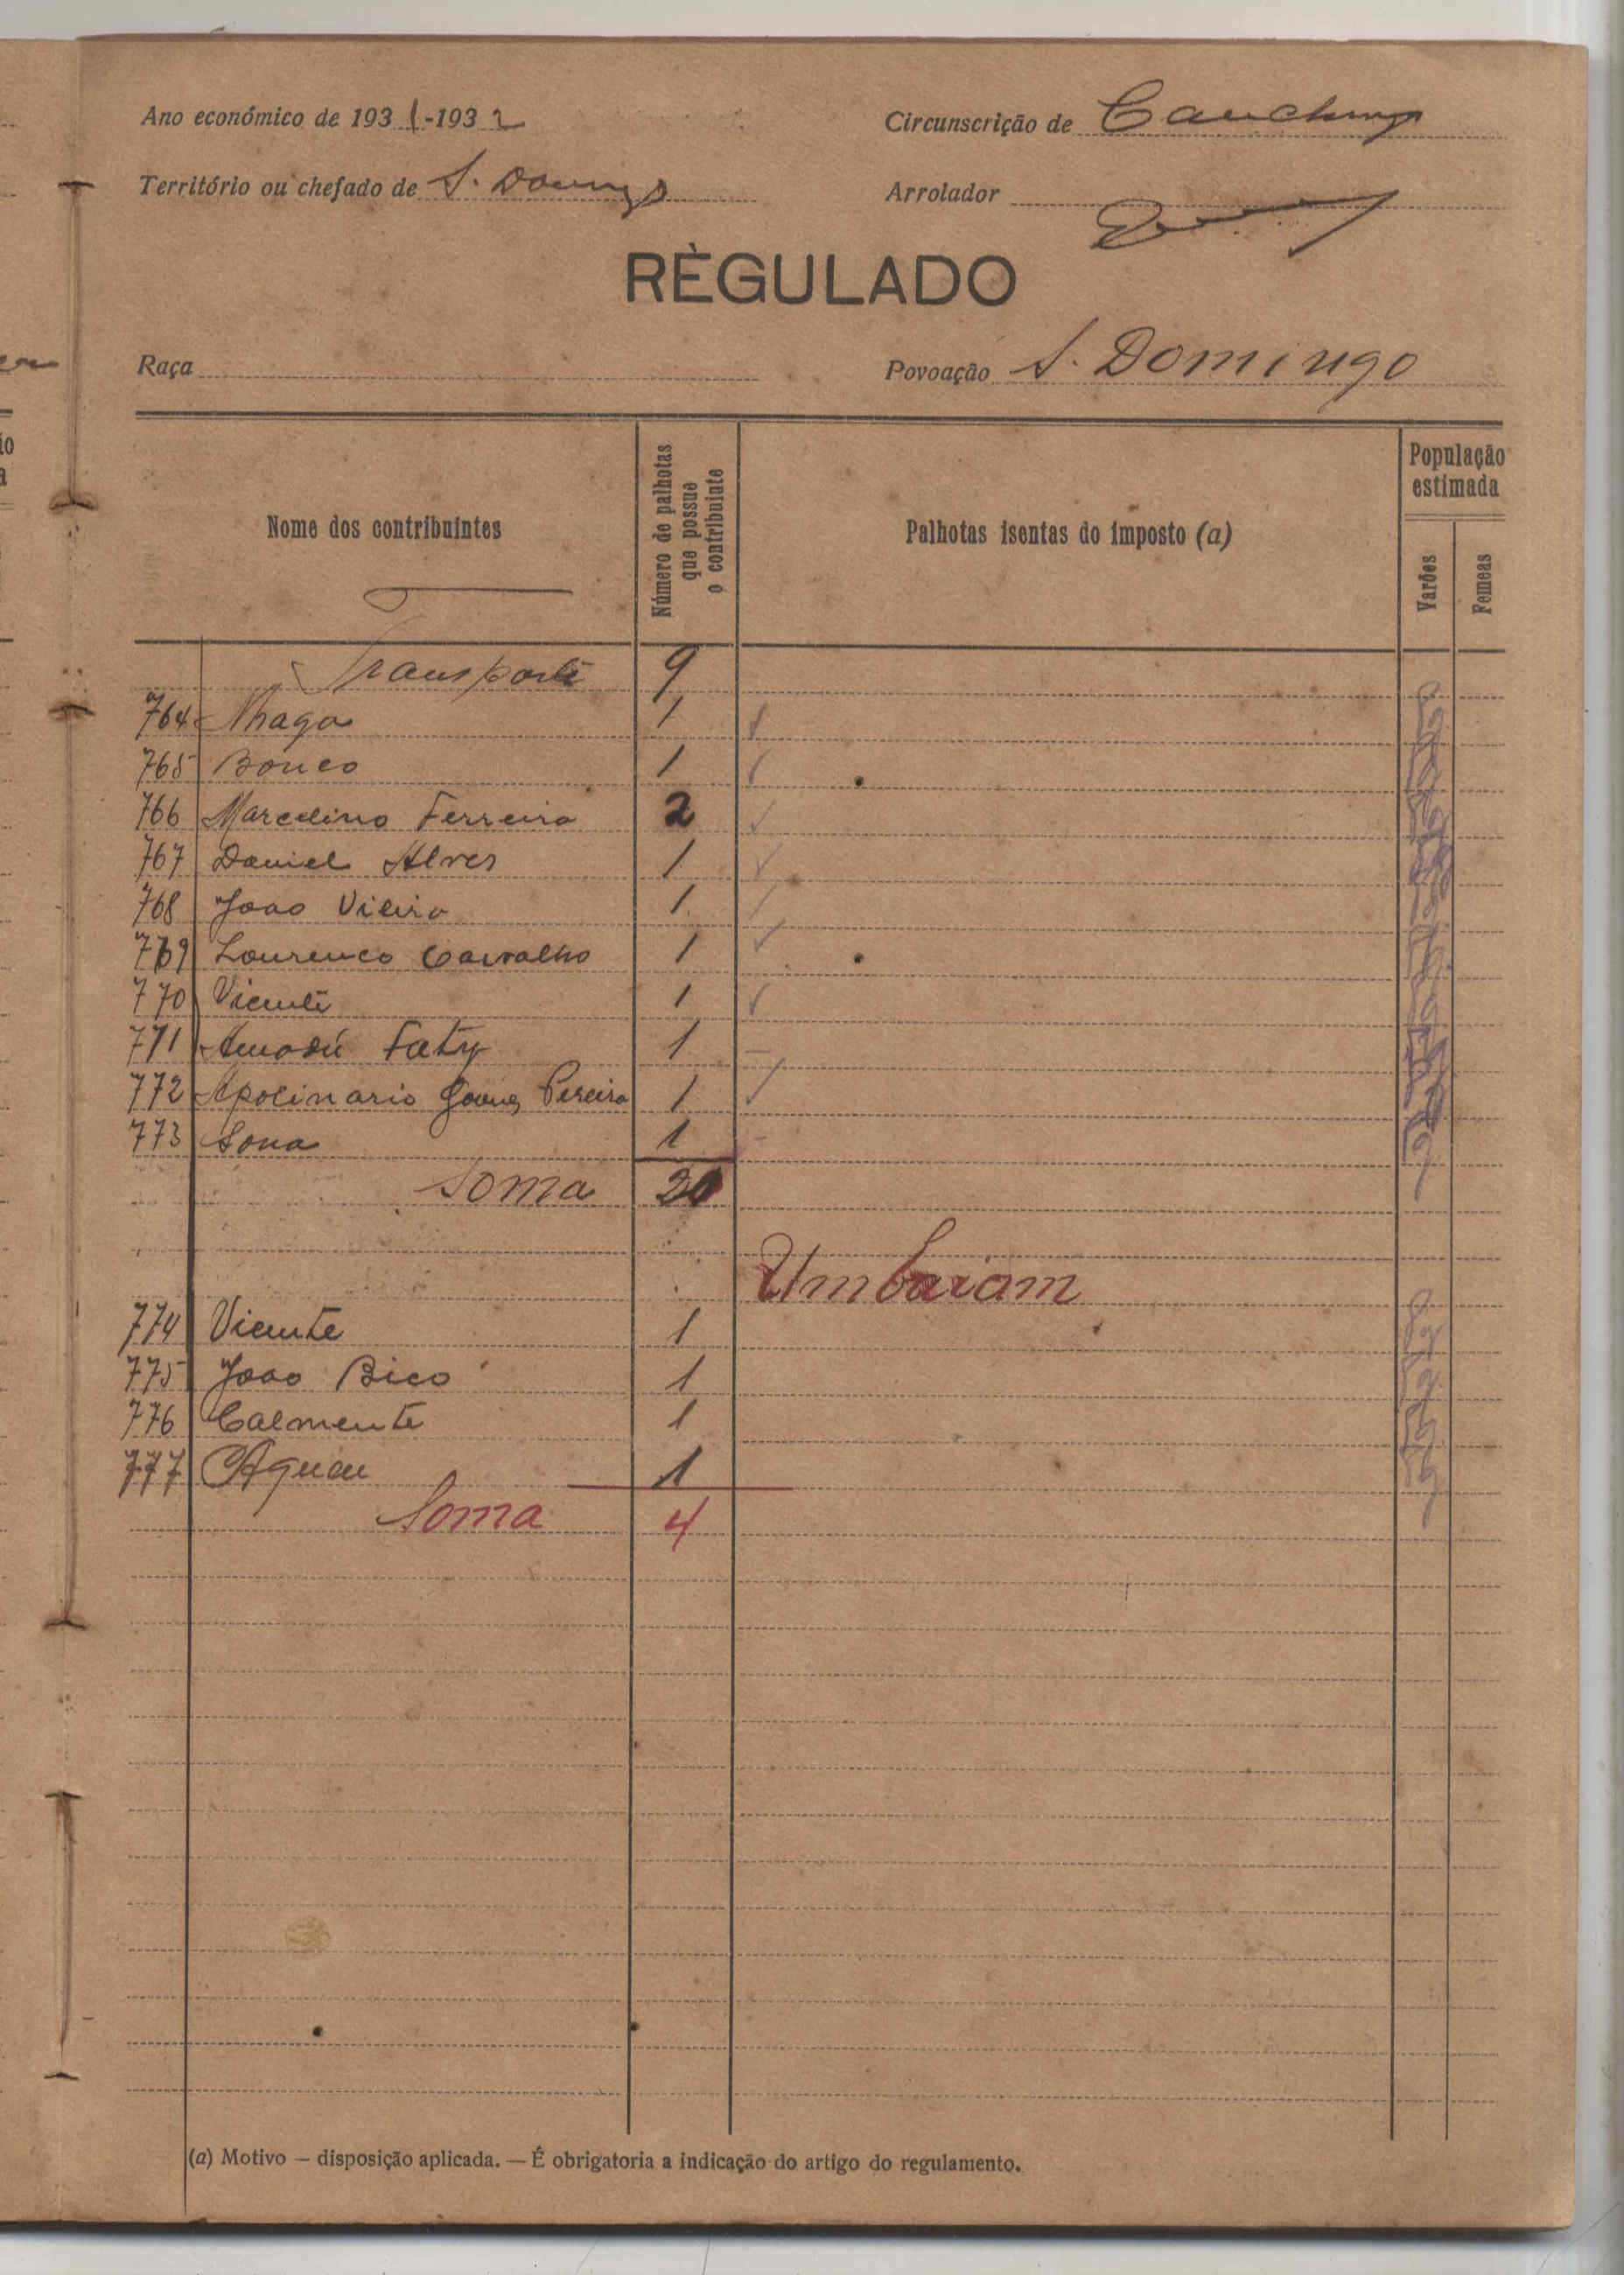 Ano económico de 1931-1932
Circunscrição de
Território ou chefado de S. Domingo
Arrolador
RÈGULADO
Raça
Povoação S. Domingo
Nome dos contribuintes
Número de palhotas que possue o contribuinte
Palhotas isentas do imposto (a)
População estimada
Varões
Femeas
Transporte 9
764 Nhaga 1
765 Bonco 1
766 Marcelino Ferreira 2
767 Daniel Alves 1
768 Joao Vieira 1
769 Lourenco Carvalho 1
770 Vicente 1
771 Amadú Faty 1
772 Apolinario Gomes Pereira 1
773 Sona 1
Soma 20
Umbaiam
774 Vicente 1
775 Joao Bico 1
776 Calmente 1
777 1
Soma 4
(a) Motivo — disposição aplicada. — É obrigatoria a indicação do artigo do regulamento.